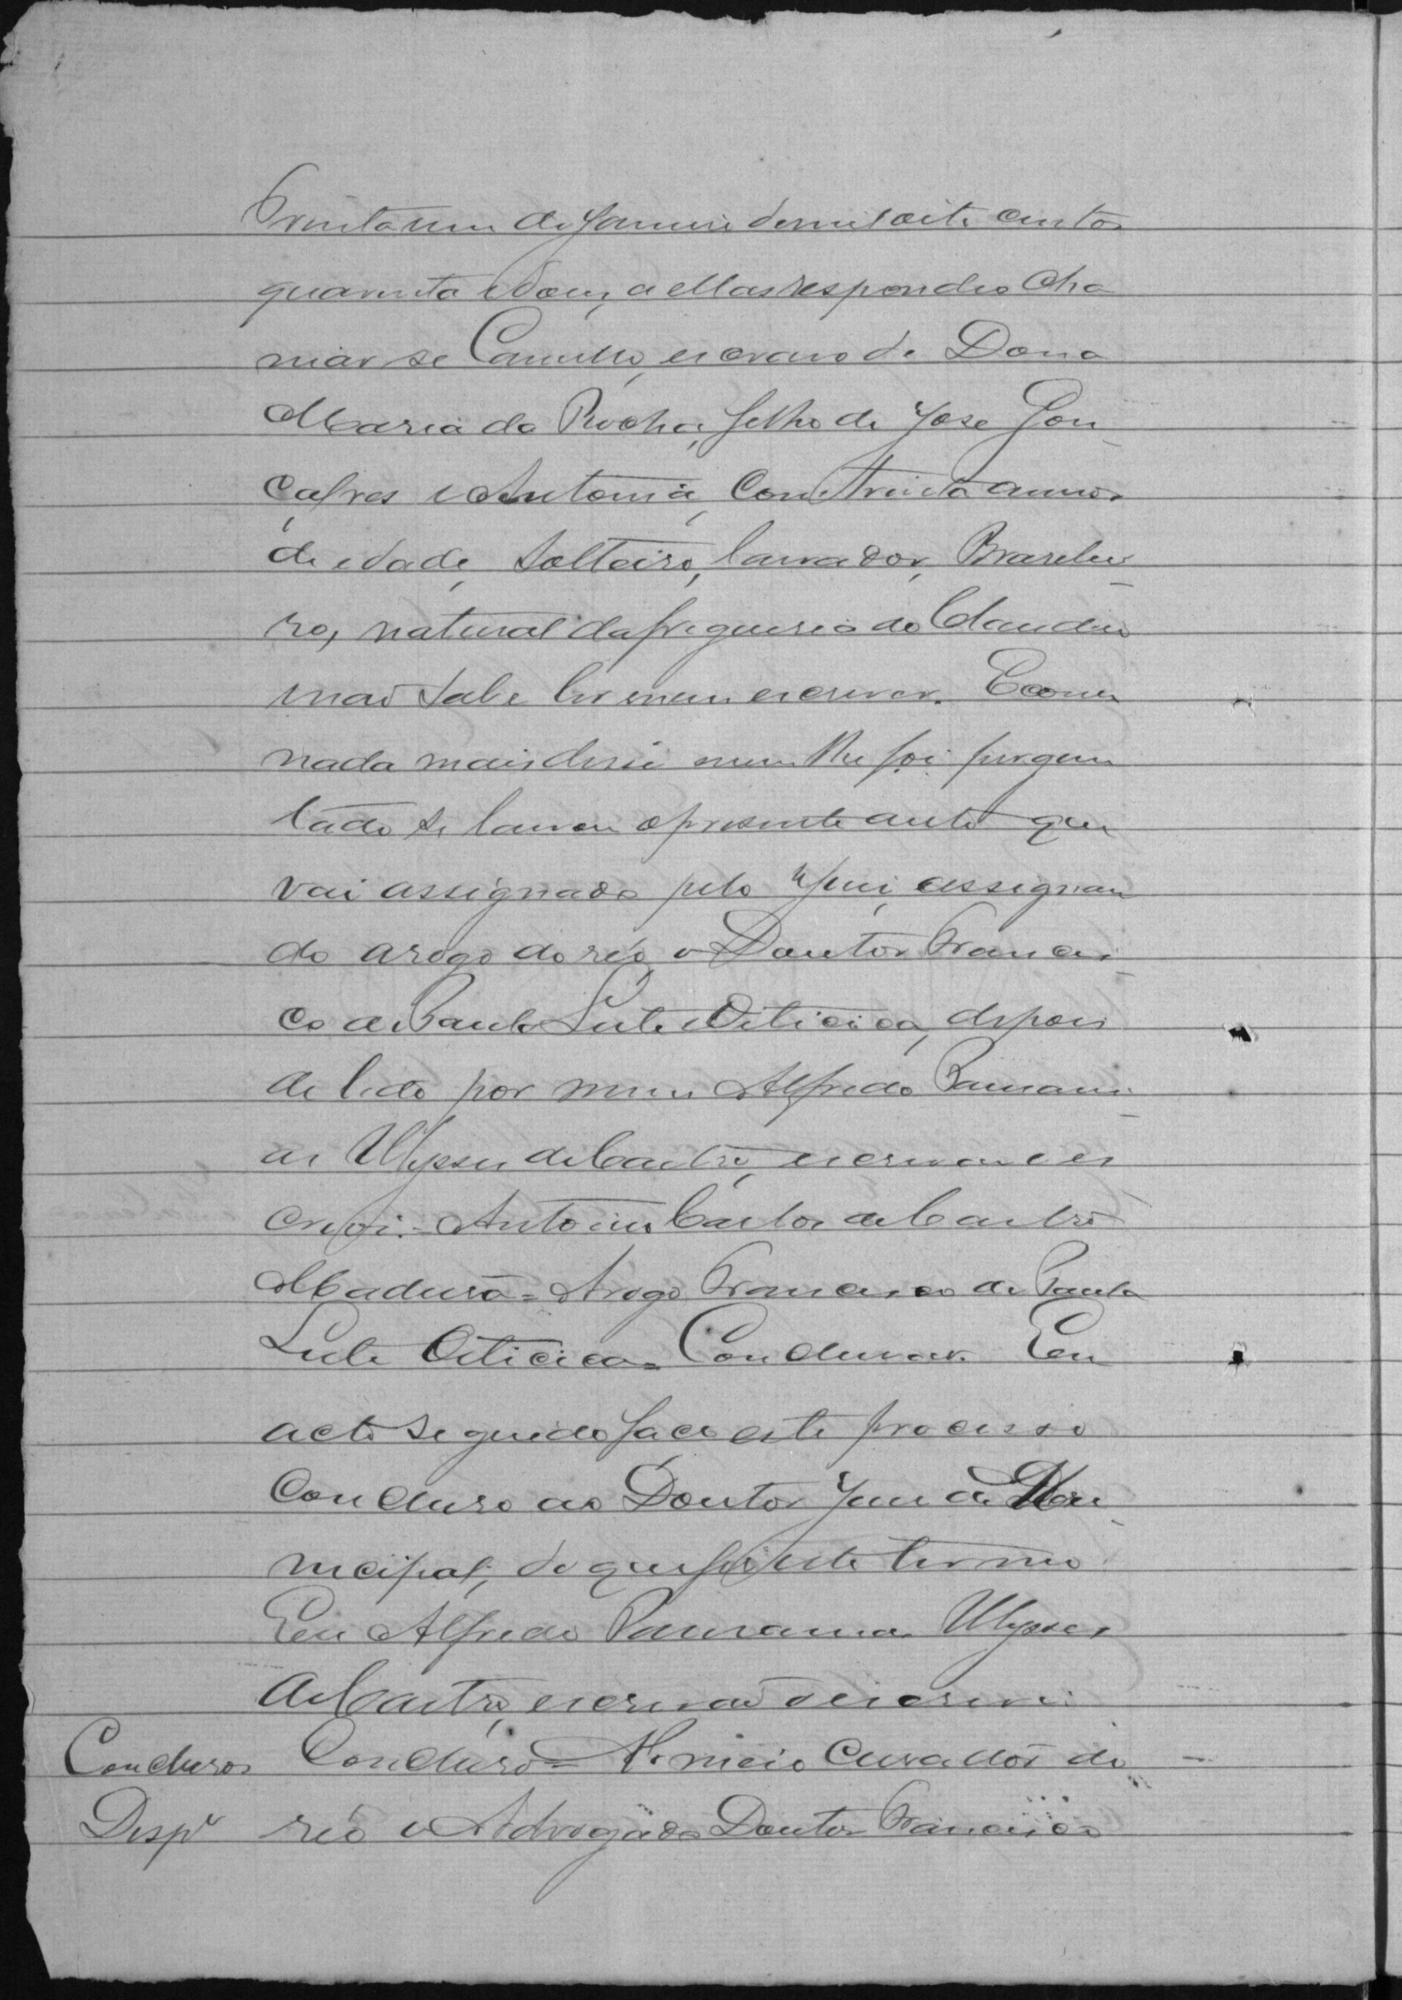 Trinta um de Janeiro de mil oito centos
quarenta e dous, a ellas respondeo cha
mar se Camillo, escravo de Dona
Maria da Rocha, filho de Jose Gon-
çalves e Antonia, com trinta annos
de idade, solteiro, lavrador, Brasilei-
ro, natural da freguesia de
não sabe ler nem escrever. E como
nada mais disse nem lhe foi pergun
tado se lavrou o presente auto que
vai assignado pelo Juiz, assignan
do arogo do réo o Doutor Francis-
co de Paula Leite Oiticica, depois
de lido por mim Alfredo
de Ulysses de Castro, escrivão e es-
crevi. = Antonio Carlos de Castro
Madeira = Arogo Francisco de Paula
Leite Oiticica = Conclusos. Em
acto seguido faço este processo
concluso ao Doutor Juiz de Mu-
nicipal, do que fiz este termo
Eu Alfredo Ulysses
de Castro, escrivão o escrevi
Conclusos Concluso = Nomeio Curador do
Desp.º réo o Advogado Doutor Francisco